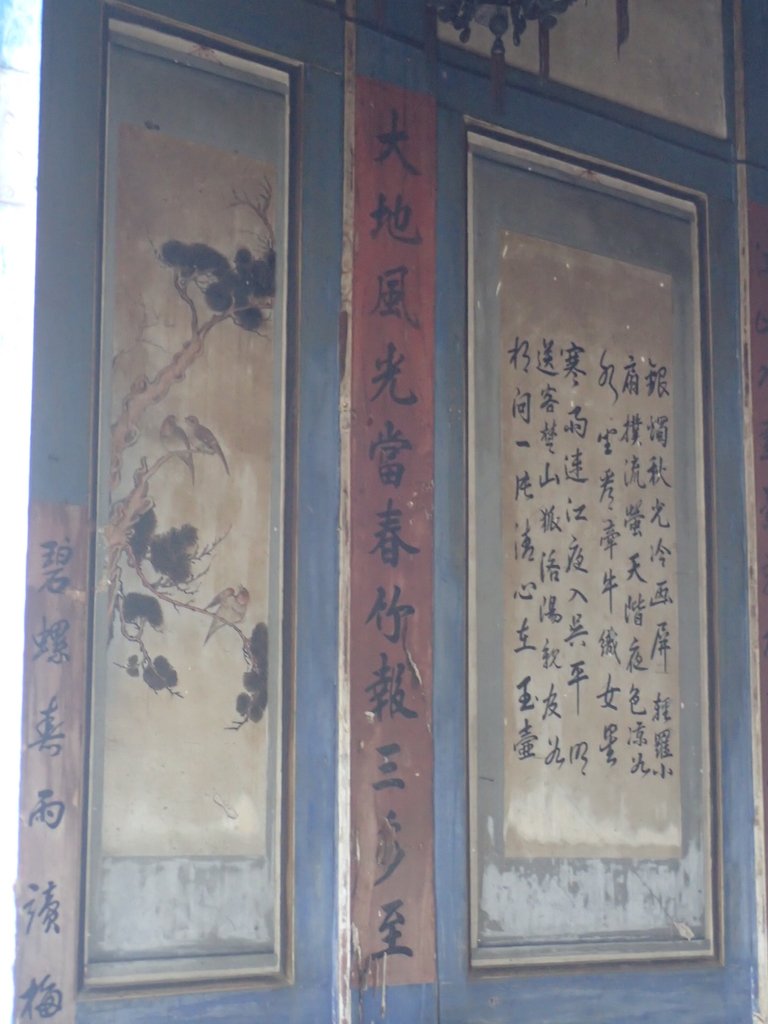 銀燭秋光冷画屏輕羅小
扇撲流螢天階夜色涼如
水坐看牽牛織女星
寒雨連江夜入吳平明
送客楚山孤洛陽親友如
相問一片清心在玉壺
大地風光當春竹報三多至
碧螺春雨讀梅